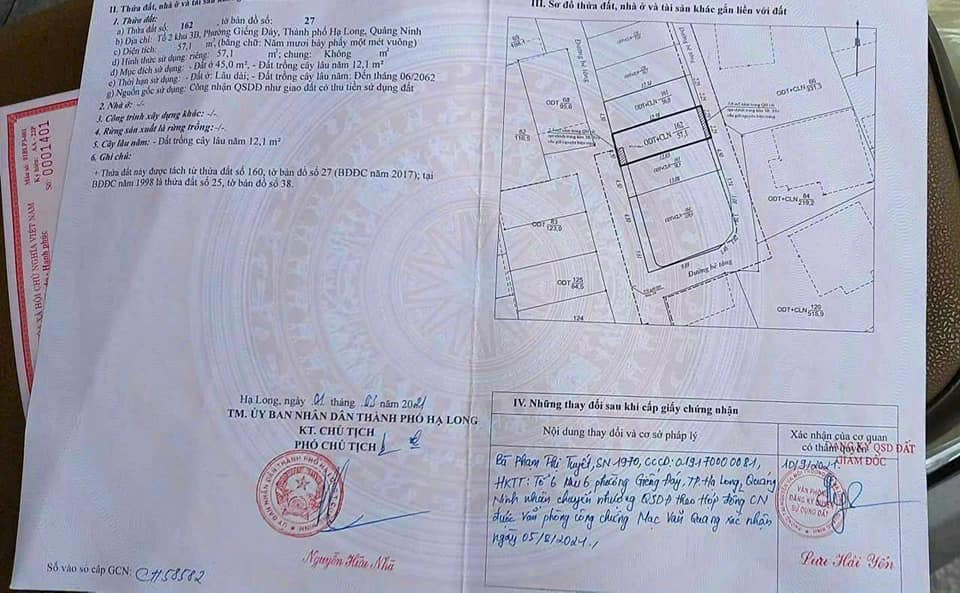 II. Thửa đất, nhà ở và tài sản
1. Thửa đất:
a) Thửa đất số: 162 , tờ bản đồ số: 27
b) Địa chỉ: Tổ 2 khu 3B, Phường Giếng Đáy, Thành phố Hạ Long, Quảng Ninh
c) Diện tích: 57,1 m², (bằng chữ: Năm mươi bảy phẩy một mét vuông)
d) Hình thức sử dụng: riêng: 57,1 m²; chung: Không m²
đ) Mục đích sử dụng: - Đất ở 45,0 m², - Đất trồng cây lâu năm 12,1 m²
e) Thời hạn sử dụng: - Đất ở: Lâu dài; - Đất trồng cây lâu năm: Đến tháng 06/2062
g) Nguồn gốc sử dụng: Công nhận QSDĐ như giao đất có thu tiền sử dụng đất
2. Nhà ở: -/-
3. Công trình xây dựng khác: -/-
4. Rừng sản xuất là rừng trồng: -/-
5. Cây lâu năm: - Đất trồng cây lâu năm 12,1 m²
6. Ghi chú:
+ Thửa đất này được tách từ thửa đất số 160, tờ bản đồ số 27 (BĐĐC năm 2017); tại
BĐĐC năm 1998 là thửa đất số 25, tờ bản đồ số 38.
Hạ Long, ngày 01 tháng 03 năm 2021
TM. ỦY BAN NHÂN DÂN THÀNH PHỐ HẠ LONG
KT. CHỦ TỊCH
PHÓ CHỦ TỊCH
Nguyễn Hữu Nhã
Số vào sổ cấp GCN: CH58582
Số: 0001401
III. Sơ đồ thửa đất, nhà ở và tài sản khác gắn liền với đất
Đường bê tông
ODT 68
95,6
62
118,5
ODT+CLN 162
57,1
ODT 83
123,0
ODT 125
64,5
124
66
ODT+CLN
ODT+CLN 84
219,2
ODT+CLN 120
518,9
Đường bê tông
IV. Những thay đổi sau khi cấp giấy chứng nhận
Nội dung thay đổi và cơ sở pháp lý
Xác nhận của cơ quan
có thẩm quyền
ĐĂNG KÝ QSD ĐẤT
GIÁM ĐỐC
Bà Phạm Thị Tuyết, SN 1970, CCCD: 019170000081,
HKTT: Tổ 6 khu 6 phường Giếng Đáy, TP. Hạ Long, Quảng
Ninh nhận chuyển nhượng QSDĐ theo Hợp đồng CN
được văn phòng công chứng Mạc Văn Quang xác nhận
ngày 05/8/2021.
10/9/2021
VĂN PHÒNG
ĐĂNG KÝ QUYỀN
SỬ DỤNG ĐẤT
Lưu Hải Yến